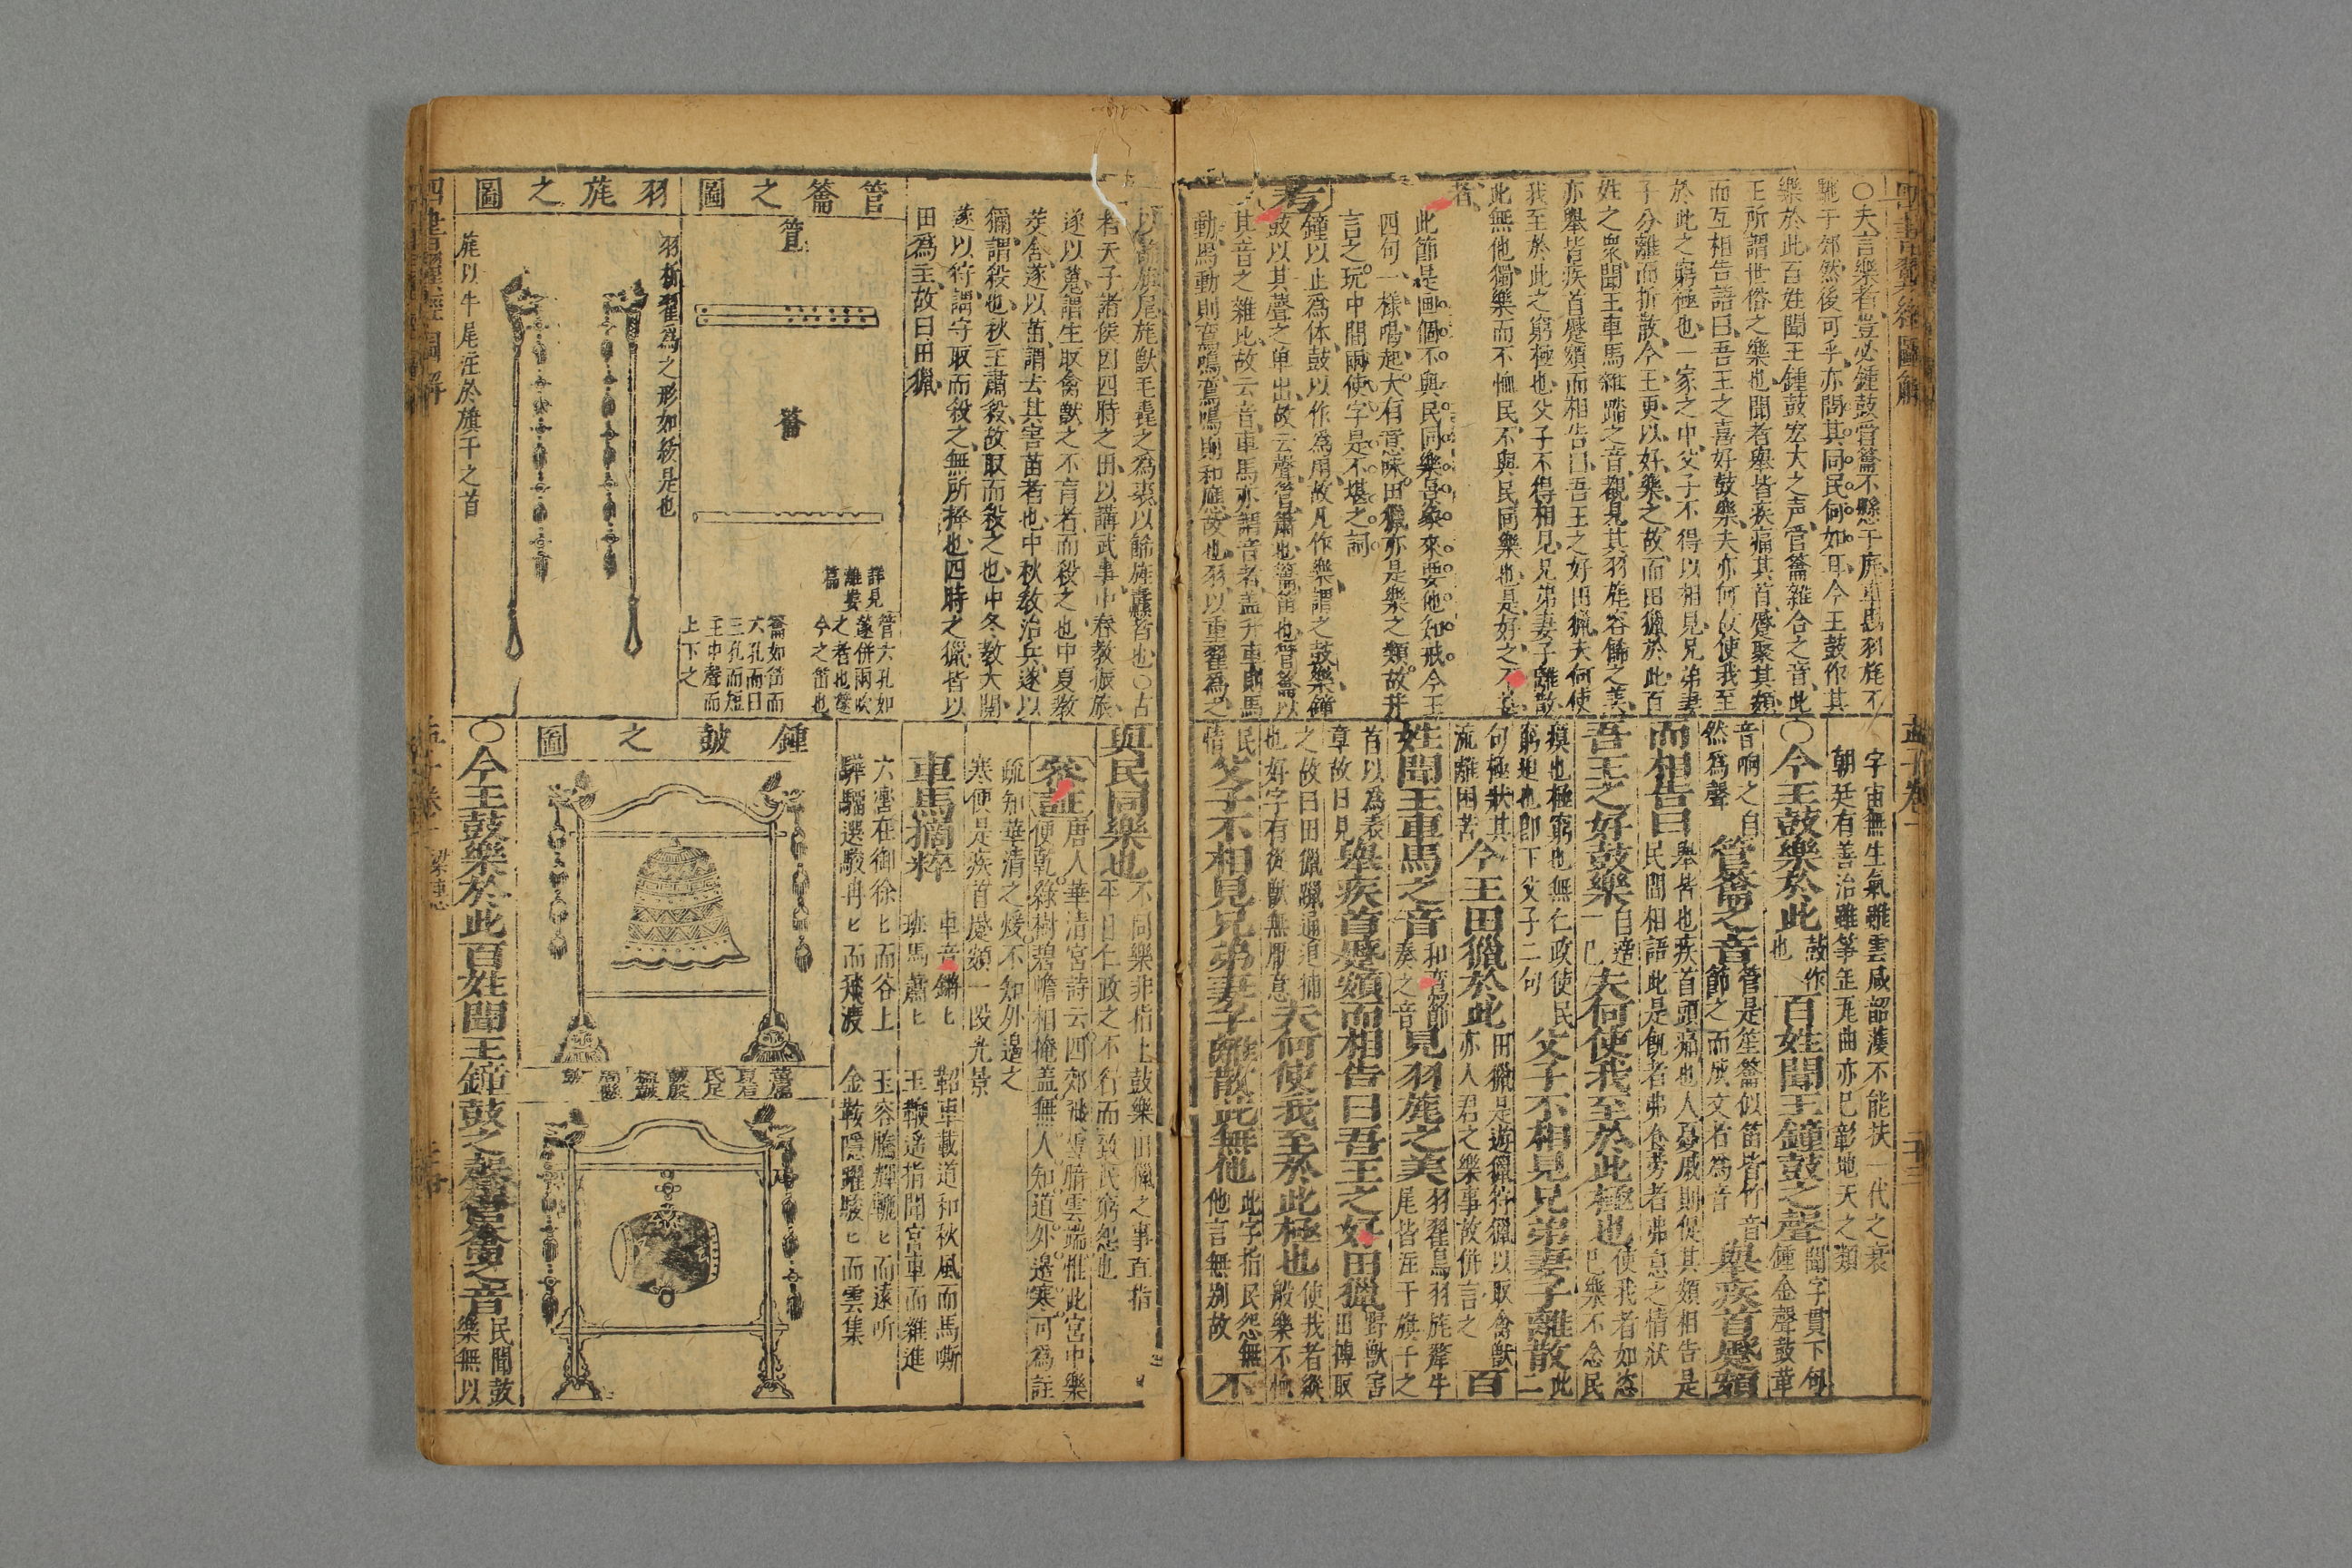 〇夫言樂者豈必鍾鼓管籥不懸于庭車馬羽旄不
馳于郊然後可乎亦問其同民何如耳今王鼓作其
樂於此百姓聞王鍾鼓宏大之声管籥雜合之音此
王所謂世俗之樂也聞者舉皆疾痛其首蹙聚其頞
而互相告語曰吾王之喜好鼓樂夫亦何故使我至
於此之窮極也一家之中父子不得以相見兄弟妻
子分離而折散今王更以好樂之故而田獵於此百
姓之衆聞王車馬雜踏之音觀見其羽旄容餙之美
亦舉皆疾首蹙頞而相告曰吾王之好田獵夫何使
我至於此之窮極也父子不得相見兄弟妻子離散
此無他獨樂而不恤民不與民同樂也是好之不
者
此節是画個不與民同樂景象來要他知戒今王
四句一樣唱起大有意味田獵亦是樂之類故并
言之玩中間兩使字是不堪之詞
考鐘以止為体鼓以作為用故凡作樂謂之鼓樂鐘
鼓以其聲之单出故云聲管簫也籥笛也管籥以
其音之雜比故云音車馬亦謂音者盖升車則馬
動馬動則鸞鳴鸞鳴則和應故也羽以重翟為之
字宙無生氣雖雲咸韶濩不能扶一代之衰
朝廷有善治雖箏缶瓦曲亦已彰地天之類
〇今王鼓樂於此鼓作也百姓聞王鐘鼓之聲聞字貫下句鍾金聲鼓革
音响之自然為聲管籥之音管是笙籥似笛皆竹音節之而成文者為音舉疾首蹙頞
而相告曰舉皆也疾首頭痛也人憂戚則促其頞相告是民間相語此是飢者弗食劳者弗息之情狀
吾王之好鼓樂自適一已夫何使我至於此極也使我者如恣已樂不念民
瘼也極窮也無仁政使民窮極也即下父子二句父子不相見兄弟妻子離散此二
句極狀其流離困苦今王田獵於此田獵是遊獵狩獵以取禽獸亦人君之樂事故併言之百
姓聞王車馬之音和鸾節奏之音見羽旄之美羽翟鳥羽旄犛牛尾皆注干旗干之
首以為表章故曰見舉疾首蹙頞而相告曰吾王之好田獵野獸害田摶取
之故曰田獵躐通追捕也好字有從獸無厭意夫何使我至於此極也使我者縱般樂不恤
民情父子不相見兄弟妻子離散此無他此字指民怨無他言無別故不
者天子諸侯因四時之田以講武事中春教振旅
遂以蒐謂生取禽獸之不育者而殺之也中夏教
茇舍遂以苗謂去其害苗者也中秋教治兵遂以
獮謂殺也秋主肅殺故取而殺之也中冬教大閱
遂以狩謂守取而殺之無所擇也四時之獵皆以
田爲主故曰田獵
管籥之圖
管
籥
詳見離婁篇
管六孔如篴併兩吹之者也篴今之笛也
籥如笛而六孔而曰三孔而短主中聲而上下之
羽旄之圖
羽析翟為之形如綏是也
旄以牛尾注於旗干之首
與民同樂也不同樂非指上鼓樂田獵之事直指平日仁政之不行而致民窮怨也
參証唐人華清宮詩云四郊飛雪暗雲端惟此宮中樂便乾綠樹碧幨相掩盖無人知道外邉寒可為註
疏知華清之煖不知外邉之寒便是疾首蹙頞一段光景
車馬摘粹
車音轔匕
班馬蕭匕
軺車載道和秋風而馬嘶
玉鞭遙指間宮車而雜進
六轡在御徐匕而谷上
驊騮選駿冉匕而飛渡
玉容騰輝轆匕而遠听
金鞍隱躍駿匕而雲集
鍾皷之圖
〇今王鼓樂於此百姓聞王鐘鼓之聲管籥之音民聞鼓樂無以